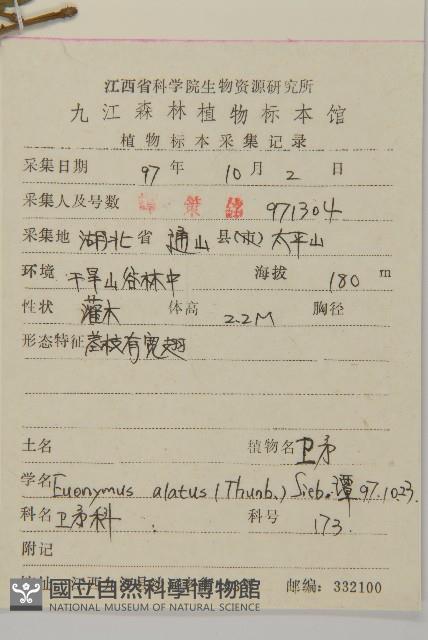 江西省科学院生物资源研究所
九江森林植物标本馆
植物标本采集记录
采集日期 97 年 10 月 2 日
采集人及号数 譚策铭 971304
采集地 湖北 省 通山 县(市) 太平山
环境 干旱山谷林中 海拔 180 m
性状 灌木 体高 2.2M 胸径
形态特征 茎枝有宽翅
土名 植物名 卫矛
学名 Euonymus alatus (Thunb.) Sieb. 谭 97.10.23.
科名 卫矛科 科号 173.
附记
邮编: 332100
國立自然科學博物館
NATIONAL MUSEUM OF NATURAL SCIENCE